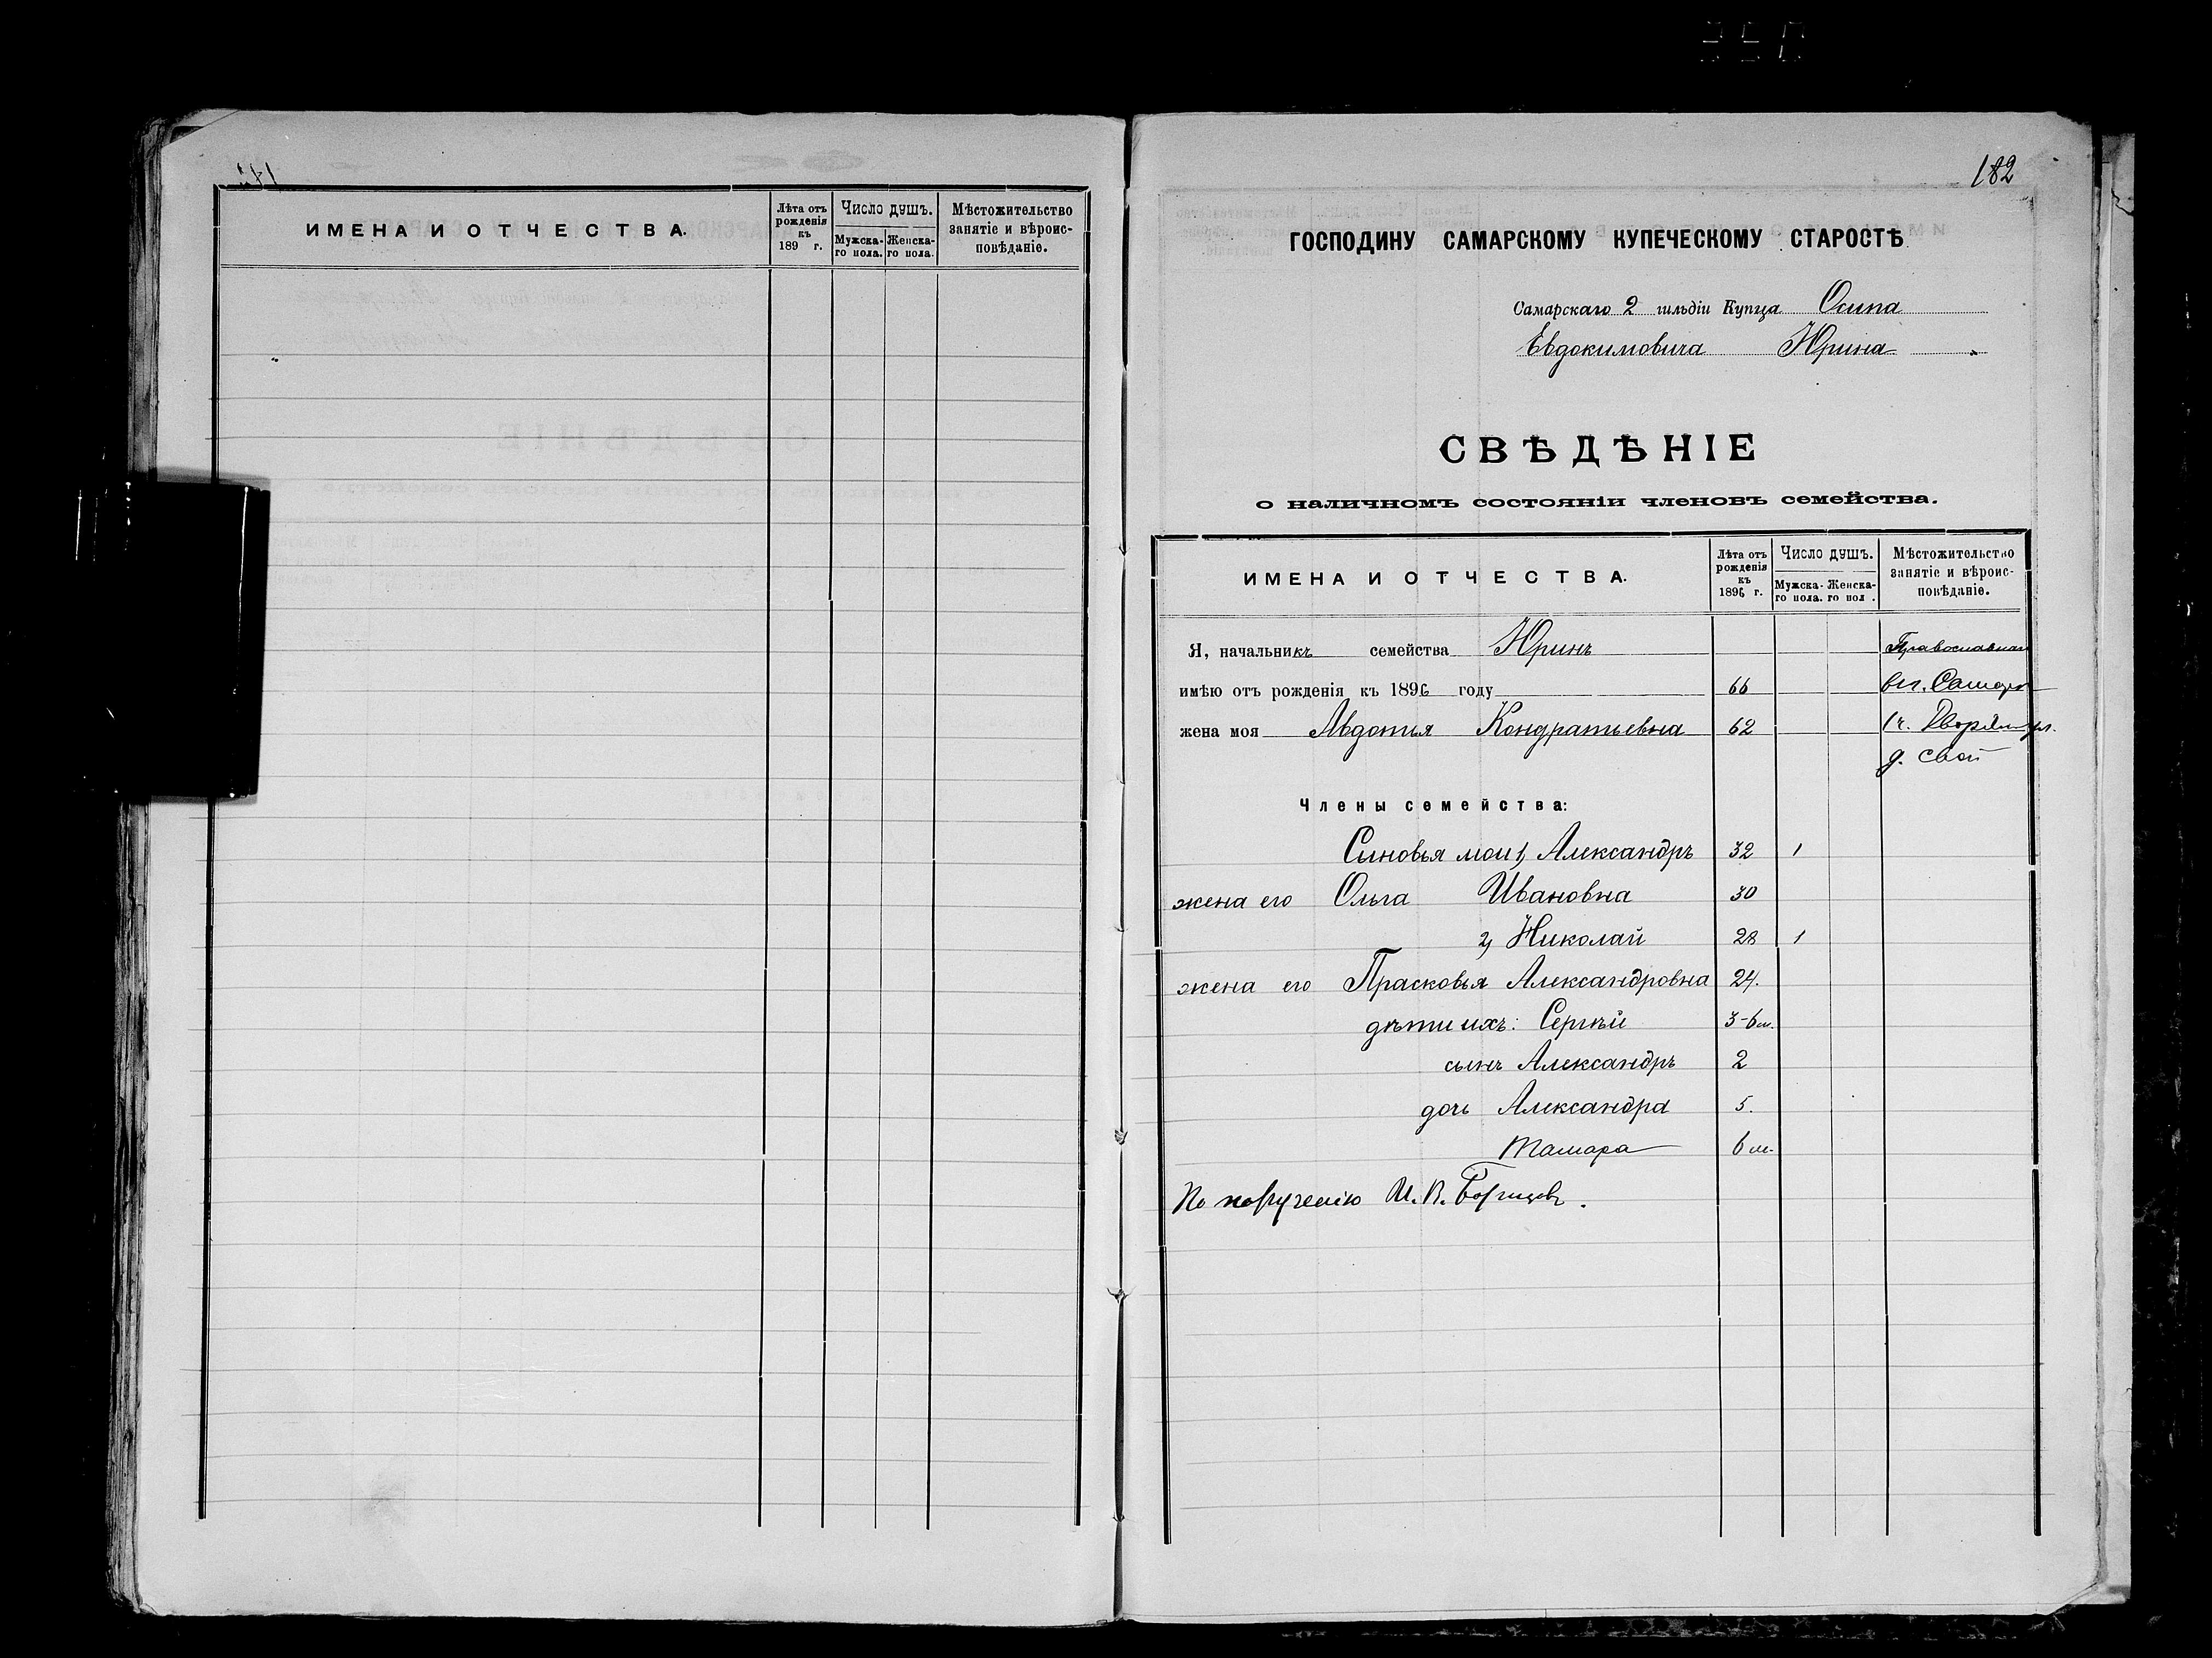 ИМЕНА И ОТЧЕСТВА.
Лѣта отъ рожденія къ 189 г.
Число душъ.
Мужска-го пола.
Женска-го пола.
Мѣстожительство занятіе и вѣроис-повѣданіе.
182
ГОСПОДИНУ САМАРСКОМУ КУПЕЧЕСКОМУ СТАРОСТѢ
Самарскаго 2 гильдіи Купца Осипа
Евдокимовича Юрина
СВѢДѢНІЕ
о наличномъ состояніи членовъ семейства.
ИМЕНА И ОТЧЕСТВА.
Лѣта отъ рожденія къ 1896 г.
Число душъ.
Мужска-го пола.
Женска-го пол .
Мѣстожительство занятіе и вѣроис-повѣданіе.
Я, начальникъ семейства Юринъ Православная
имѣю отъ рожденія къ 1896 году 66 в г. Самарѣ
жена моя Авдотья Кондратьевна 62 1 ч. Дворян ул.
д. свой
Члены семейства:
Сыновья мои 1, Александръ 32 1
жена его Ольга Ивановна 30
2, Николай 28 1
жена его Прасковья Александровна 24.
дѣти ихъ: Сергѣй 3-6 м.
сынъ Александръ 2
дочь Александра 5.
Тамара 6 м.
По порученію И. В.